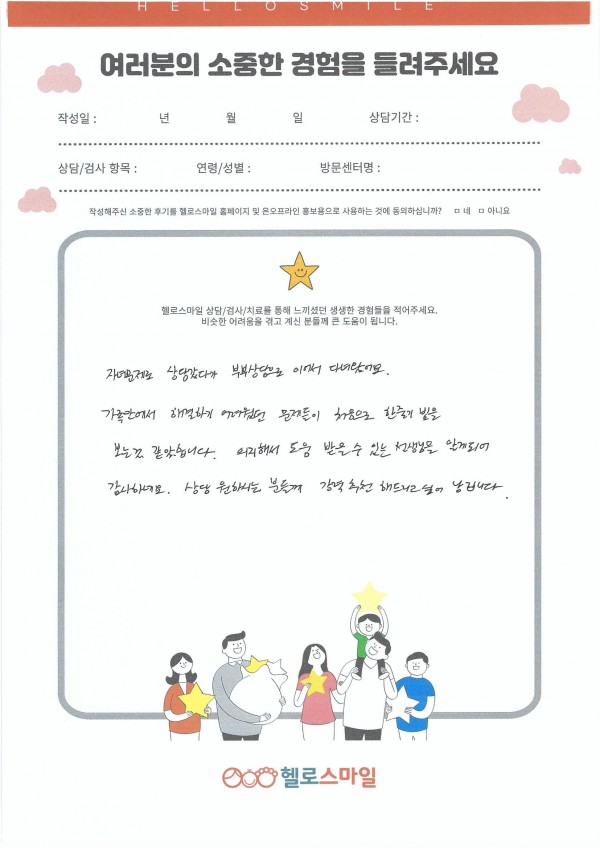 HELLOSMILE
여러분의 소중한 경험을 들려주세요
작성일 : 년 월 일 상담기간 :
상담/검사 항목 : 연령/성별 : 방문센터명 :
작성해주신 소중한 후기를 헬로스마일 홈페이지 및 온오프라인 홍보용으로 사용하는 것에 동의하십니까? ㅁ 네 ㅁ 아니요
헬로스마일 상담/검사/치료를 통해 느끼셨던 생생한 경험들을 적어주세요.
비슷한 어려움을 겪고 계신 분들께 큰 도움이 됩니다.
자녀문제로 상담갔다가 부부상담으로 이어서 다녀왔어요.
가족안에서 해결하기 어려웠던 문제들이 처음으로 한줄기 빛을
보는것 같았습니다. 의지해서 도움 받을 수 있는 선생님을 알게되어
감사하네요. 상담 원하시는 분들께 강력 추천 해드리고싶어 남깁니다.
헬로스마일